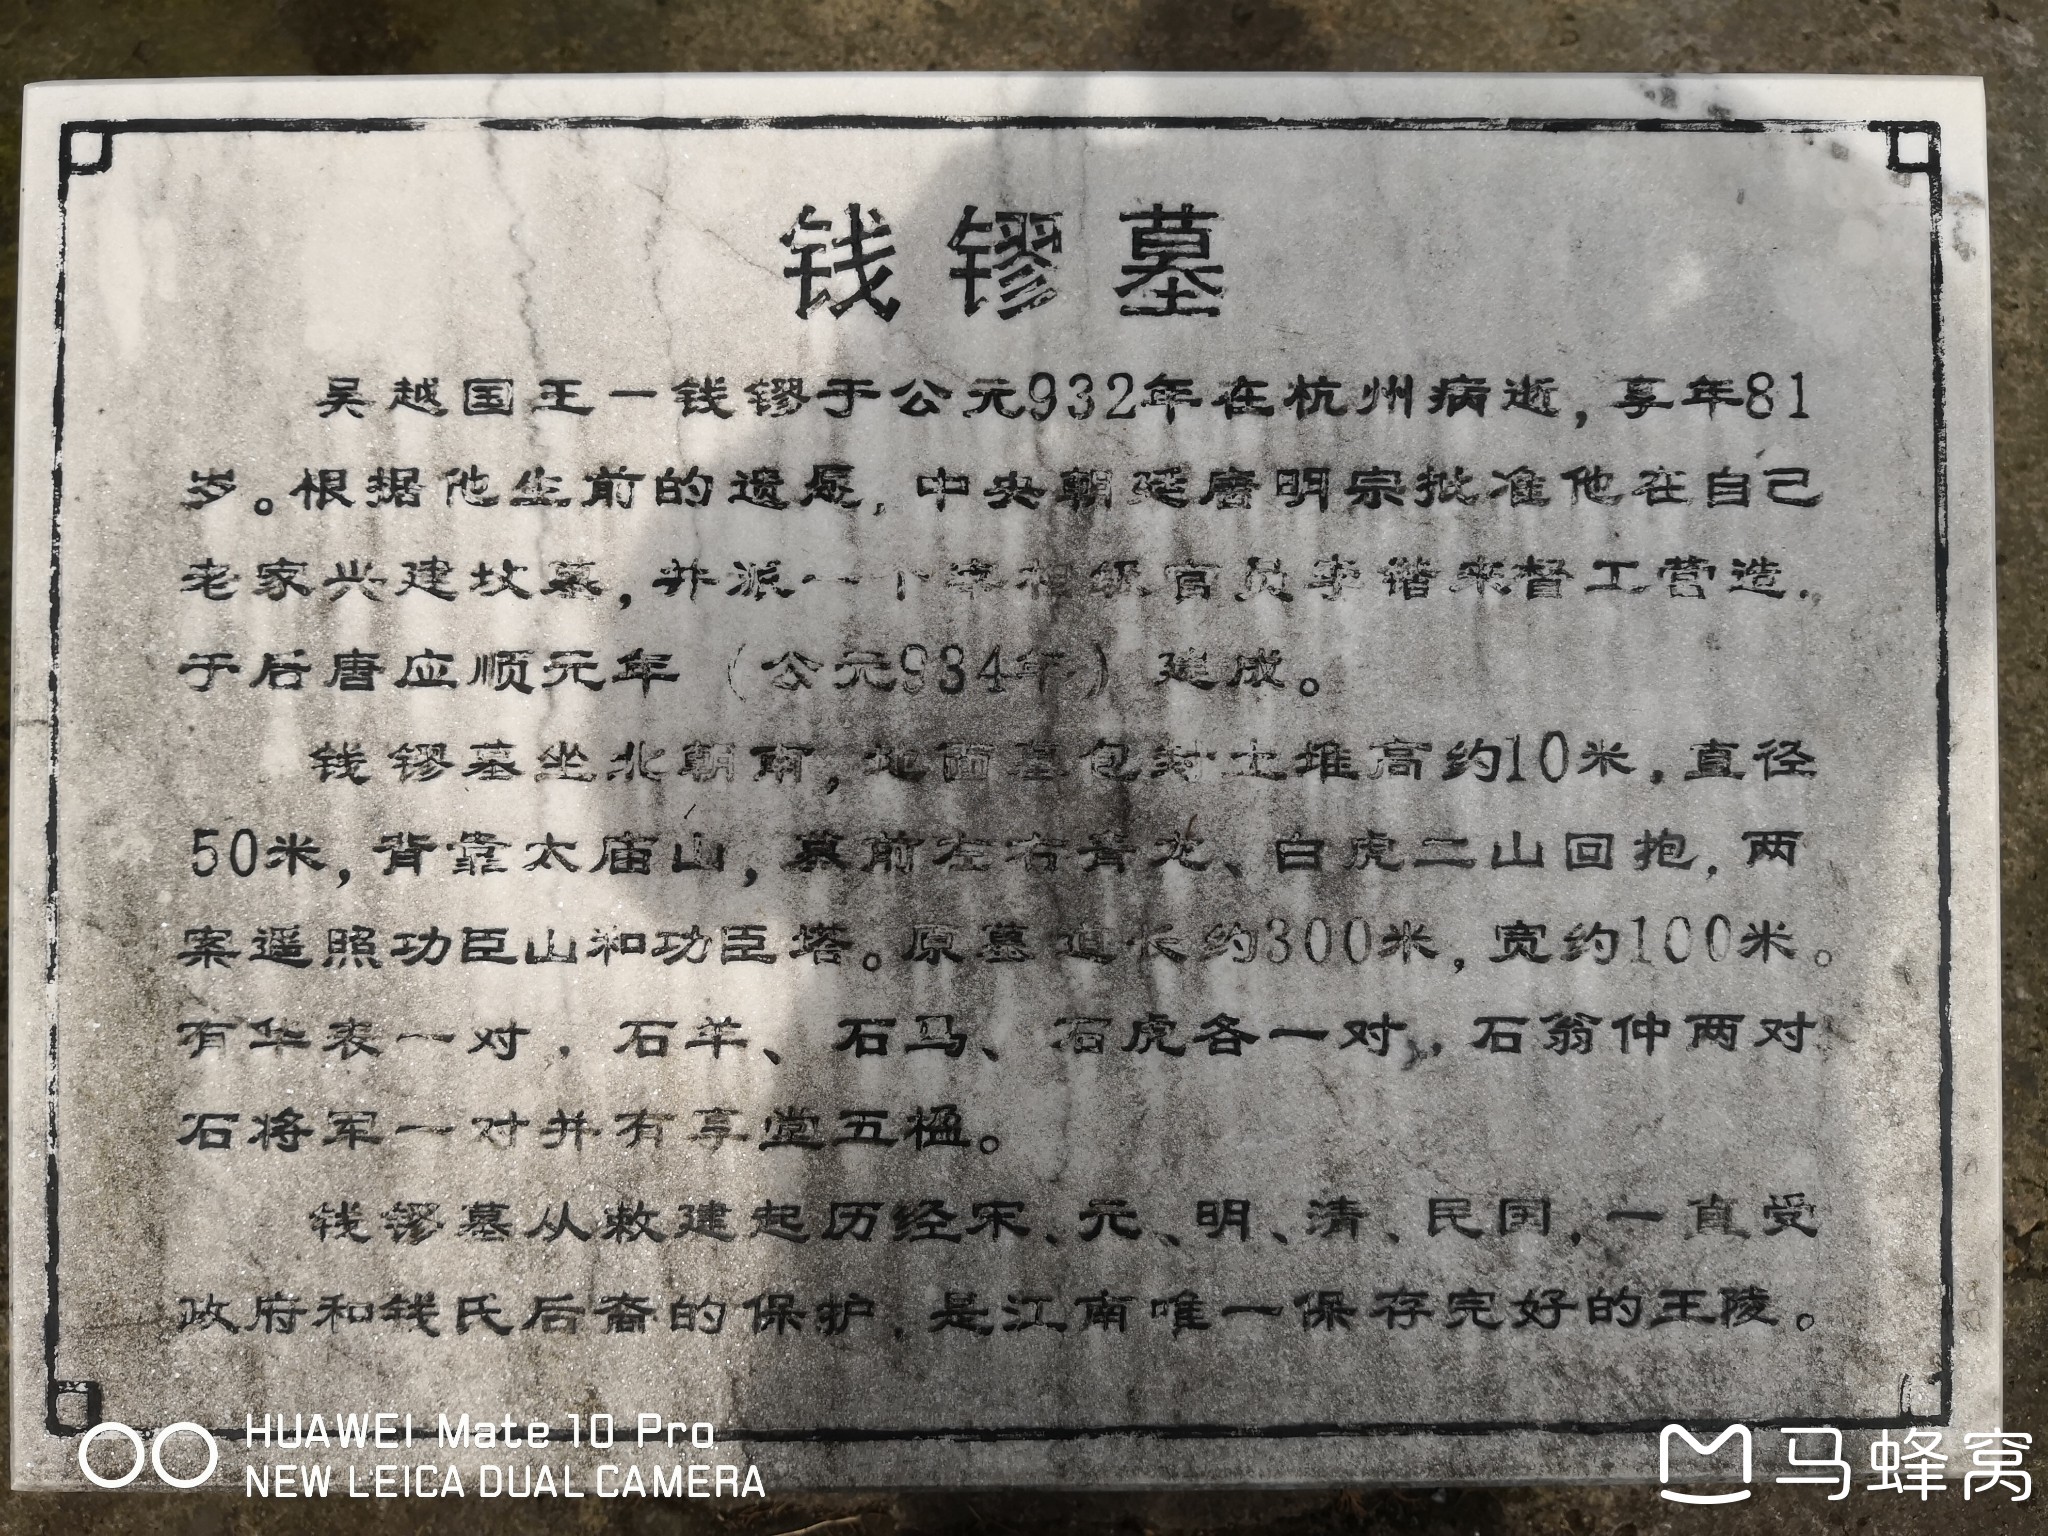 钱镠墓
吴越国王一钱镠于公元932年在杭州病逝,享年81
岁。根据他生前的遗愿,中央朝廷唐明宗批准他在自己
老家兴建坟墓,并派一个宰相级官员李锴来督工营造.
于后唐应顺元年(公元934年)建成。
钱镠墓坐北朝南,地面墓包封土堆高约10米,直径
50米,背靠太庙山,墓前左右青龙、白虎二山回抱,两
案遥照功臣山和功臣塔。原墓道长约300米,宽约100米。
有华表一对,石羊、石马、石虎各一对,石翁仲两对
石将军一对并有享堂五楹。
钱镠墓从敕建起历经宋、元、明、清、民国,一直受
政府和钱氏后裔的保护,是江南唯一保存完好的王陵。
HUAWEI Mate 10 Pro
NEW LEICA DUAL CAMERA
马蜂窝